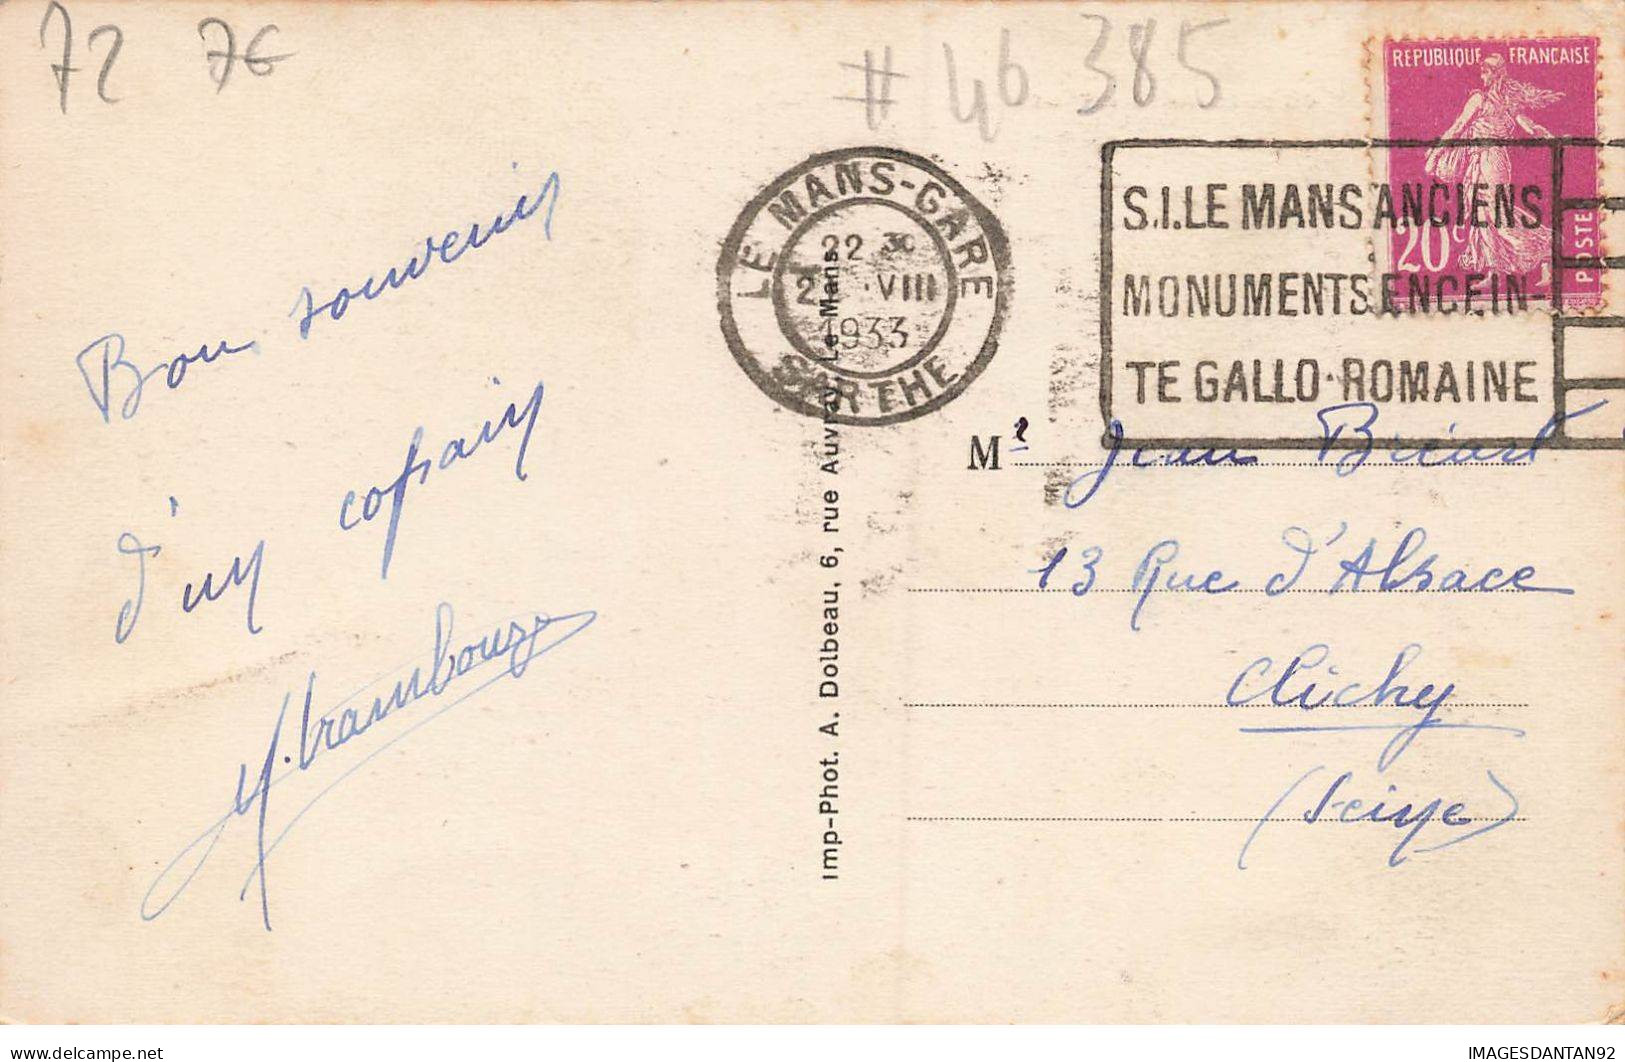 72 7€
# 46 385
REPUBLIQUE FRANCAISE
20c
POSTE
LE MANS-GARE
22 30
VIII
1933
SARTHE
S.I. LE MANS ANCIENS
MONUMENTS ENCEIN-
TE GALLO-ROMAINE
Bon souvenir
d'un copain
Imp-Phot. A. Dolbeau, 6, rue Auvray Le Mans
Mr Jean Bricart
13 Rue d'Alsace
Clichy
(Seine)
IMAGESDANTAN92